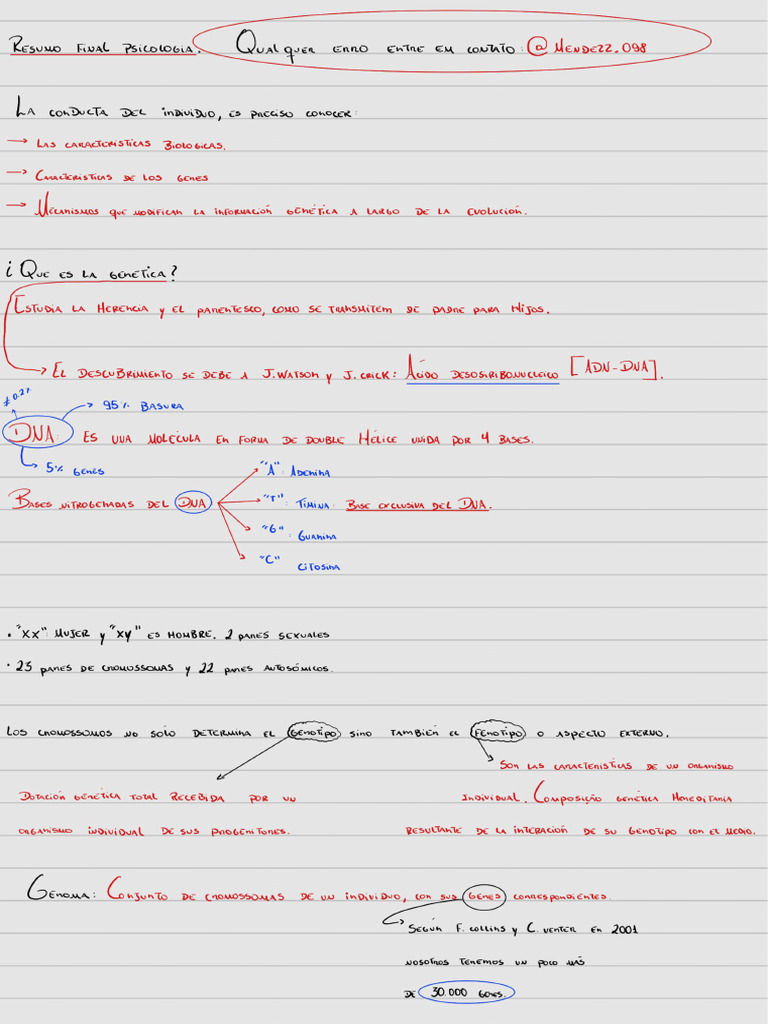 Resumo final psicologia. Qualquer erro entre em contato: @mendezz.098
La conducta del individuo, es preciso conocer:
→ Las caracteristicas biologicas.
→ Caracteristicas de los genes
→ Mecanismos que modifican la información genética a largo de la evolución.
¿Que es la genética?
Estudia la herencia y el parentesco, como se transmitem de padre para hijos.
→ El descubrimiento se debe a J.Watson y J.Crick: Ácido desosiribonucleico [ADN-DNA].
≠0.2%
→ 95% basura
DNA: Es una molécula en forma de double hélice unida por 4 bases.
→ 5% genes
"A": Adenina
Bases nitrogenadas del DNA
"T": Timina: Base exclusiva del DNA.
"G": Guanina
"C" Citosina
• "XX": mujer y "XY" es hombre. 2 pares sexuales
• 23 pares de cromossomas y 22 pares autosómicos.
Los cromossomos no solo determina el genotipo sino también el fenotipo o aspecto externo.
Son las caracteristicas de un organismo
Dotación genética total recebida por un
individual. Composição genética hereditaria
organismo individual de sus progenitores.
resultante de la interación de su genotipo con el medio.
Genoma: Conjunto de cromossomas de un individuo, con sus genes correspondientes.
→ Según F. Collins y C. Venter en 2001
nosotros tenemos un poco más
de 30.000 genes.